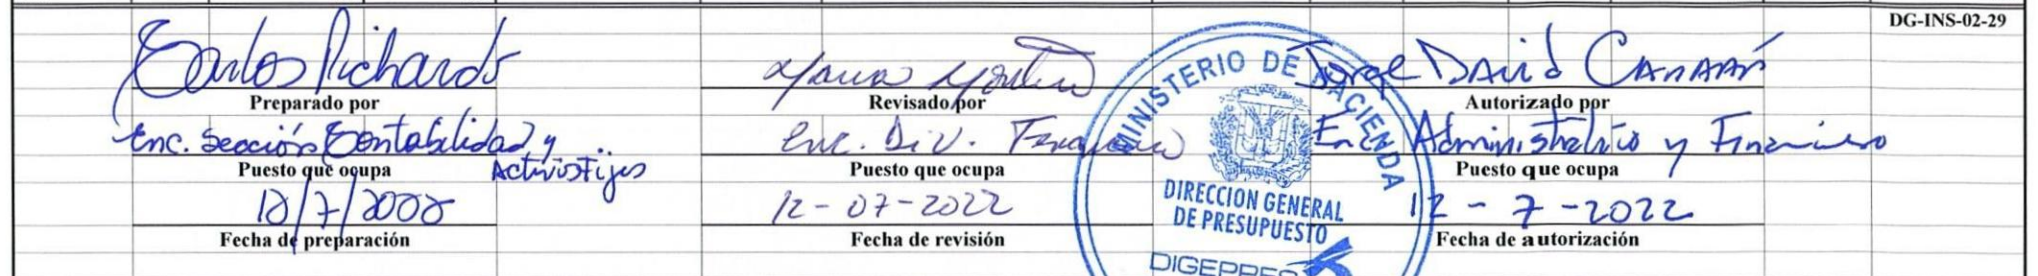 DG-INS-02-29
Carlos Pichardo
Preparado por
Enc. Sección Contabilidad y
Activos Fijos
Puesto que ocupa
12/7/2022
Fecha de preparación
Revisado por
Enc. Div. Financiero
Puesto que ocupa
12-07-2022
Fecha de revisión
MINISTERIO DE HACIENDA
DIRECCION GENERAL
DE PRESUPUESTO
DIGEPRES
Jorge David Canaán
Autorizado por
Enc Administrativo y Financiero
Puesto que ocupa
12-7-2022
Fecha de autorización